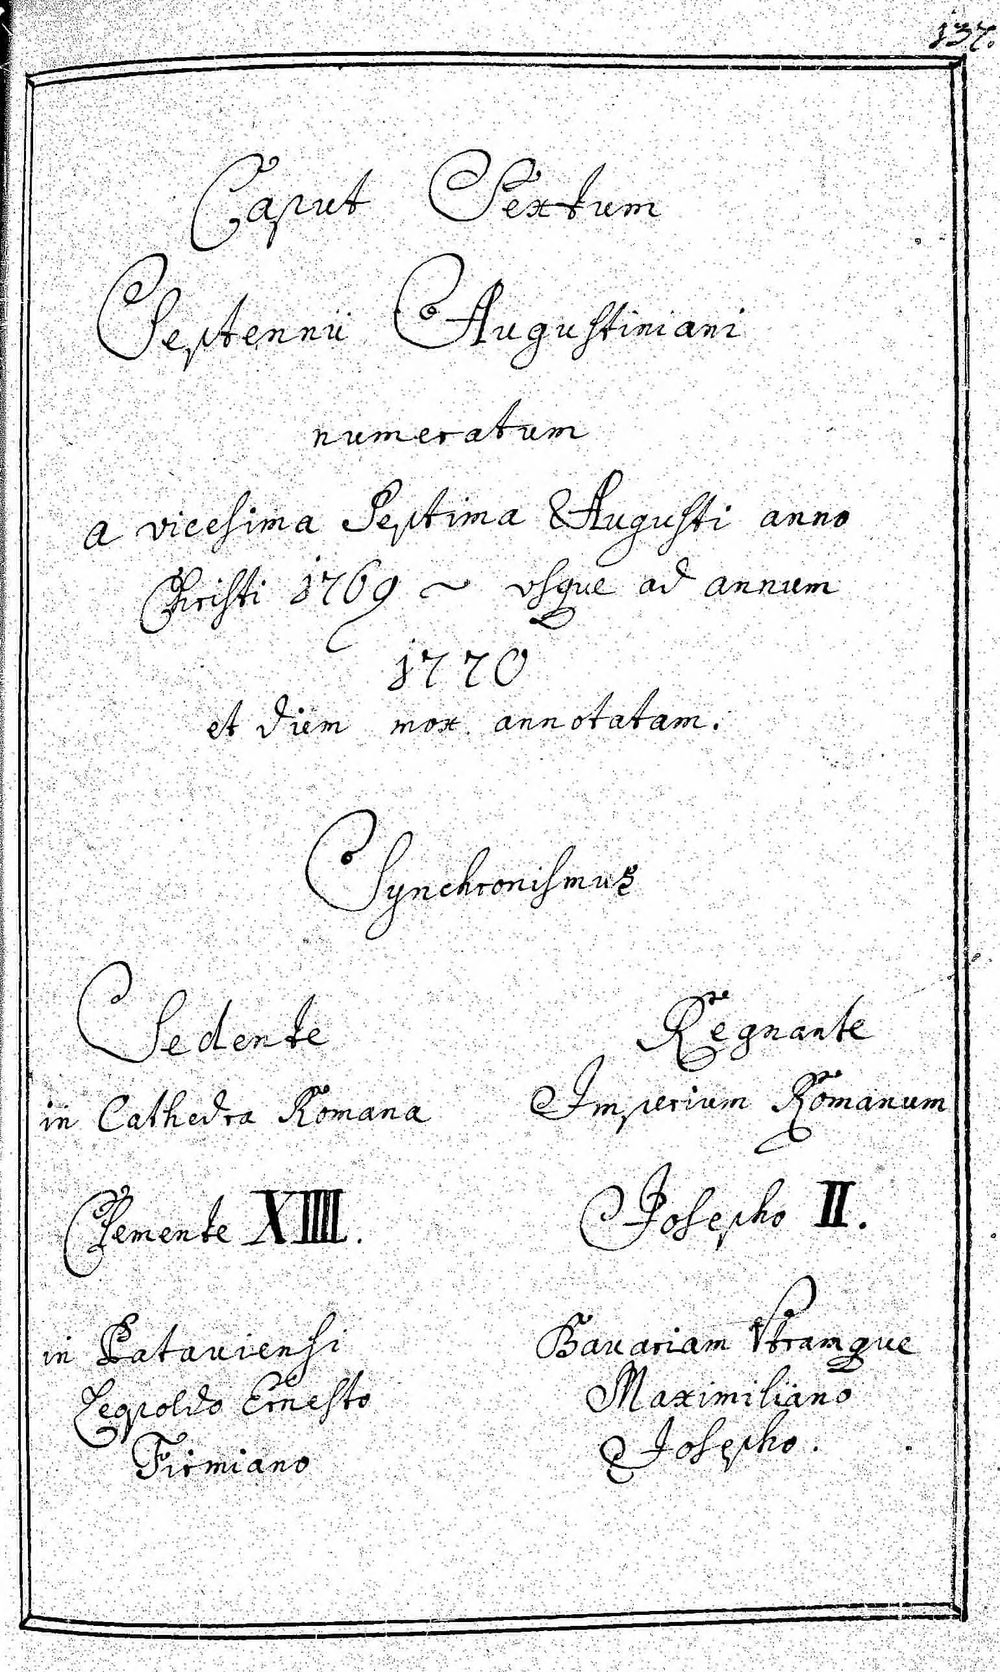 137.
Caput Sextum
Septennii Augustiniani
numeratum
a vicesima Septima Augusti anno
Christi 1769 ~ vsque ad annum
1770
et diem mox annotatam.
Synchronismus
Sedente
in Cathedra Romana
Clemente XIIII.
in Patauiensi
Leopoldo Ernesto
Firmiano
Regnante
Imperium Romanum
Josepho II.
Bauariam Vtramque
Maximiliano
Josepho.